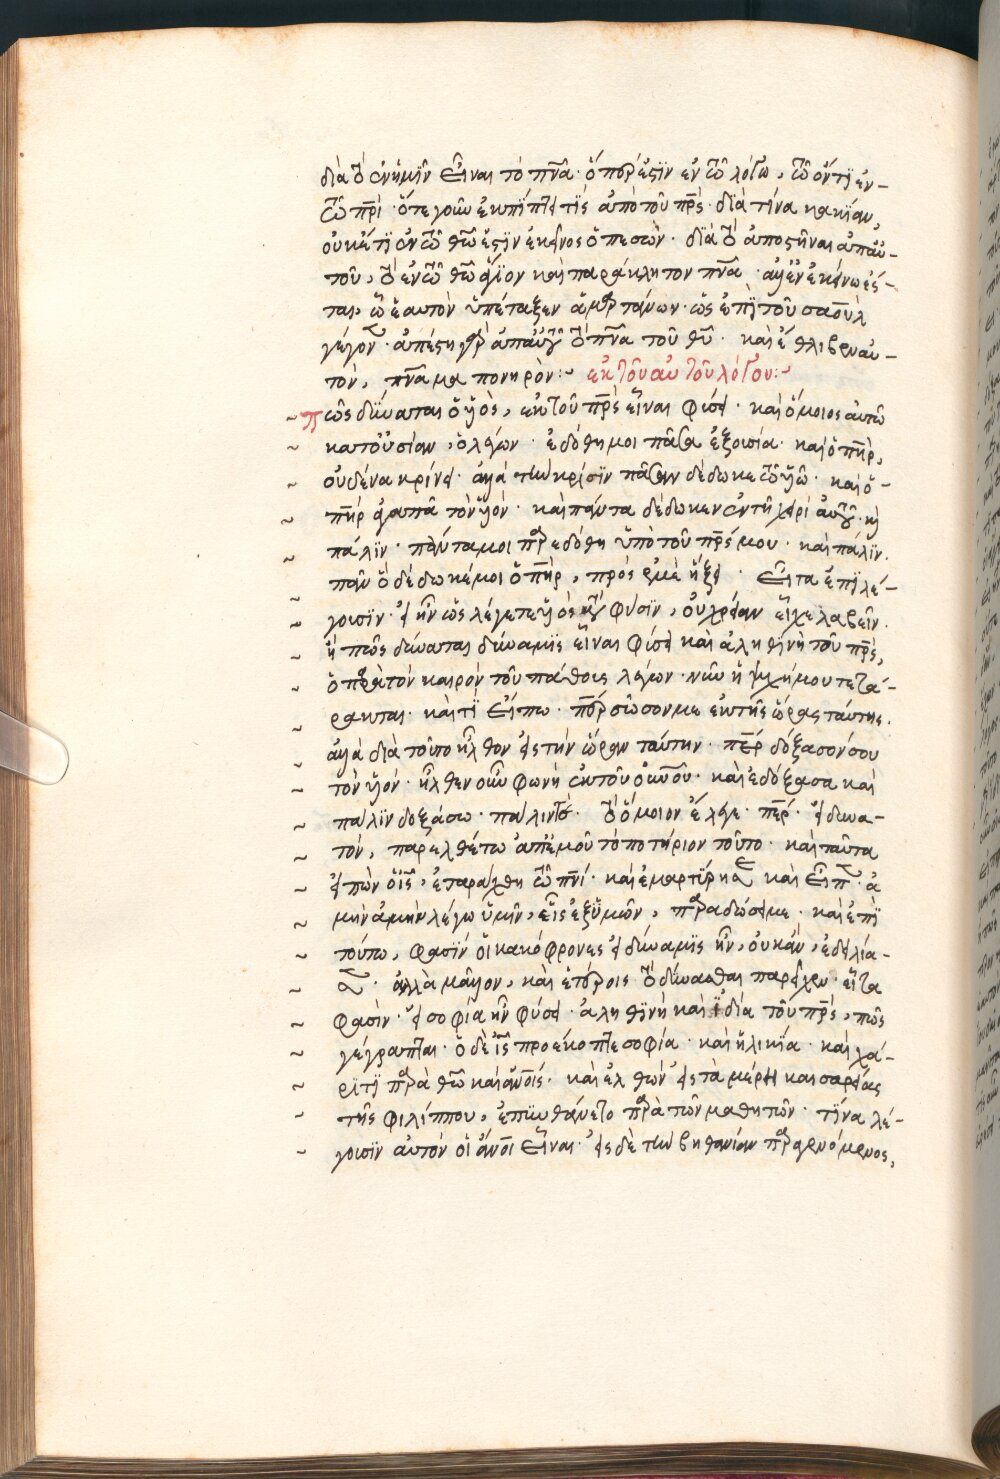 διὰ τὸ ἐν ἡμῖν εἶναι τὸ πν̅α· ὅπερ ἐστϊν ἐν τῶ λόγω, τῶ ὄντϊ ἐν-
τῶ πρ̅ι· ὅτε γοῦν ἐκπΐπτει τίς ἀπὸ τοῦ πρ̅ς· διὰ τίνα κακΐαν,
οὐκέτϊ ἐν τῶ θω̅ ἐστϊν ἐκεῖνος ὁ πεσὼν· διὰ τὸ ἀποστῆναι ἀπ' αὐ-
τοῦ, τὸ ἐν τῶ θω̅ ἅγϊον καὶ παράκλητον πν̅α· ἀλλ' ἐν ἐκείνω ἔσ-
ται, ὧ ἑαυτὸν ὑπέταξεν ἁμαρτάνων· ὡς ἐπῒ τοῦ σαοὺλ
γέγονε· ἀπέστη γὰρ ἀπ' αὐτοῦ τὸ πν̅α τοῦ θυ̅· καὶ ἔθλιβεν αὐ-
τὸν, πν̅α μα πονηρὸν:~ ἐκ τοῦ αὐτοῦ λόγου:~
πῶς δύναται ὁ υἱὸς, ἐκ τοῦ πρ̅ς εἶναι φύσει· καὶ ὅμοιος αὐτῶ
κατ' οὐσίαν, ὁ λέγων· ἐδόθη μοι πᾶσα ἐξουσία· καὶ ὁ πη̅ρ,
οὐδένα κρίνει· ἀλλὰ τὴν κρίσϊν πᾶσαν δέδωκε τῶ υἱῶ· καὶ ὁ-
πη̅ρ ἀγαπᾶ τὸν υἱόν· καὶ πάντα δέδωκεν ἐν τῆ χειρὶ αὐτοῦ· κὴ
πάλϊν· πάντα μοι παρεδόθη ὑπὸ τοῦ πρ̅ς μου· καὶ πάλϊν.
πᾶν ὃ δέδωκέ μοι ὁ πη̅ρ, πρὸς ἐμὲ ἥξει· εἶτα ἐπϊλέ-
γουσϊν· εἰ ἦν ὡς λέγετε υἱὸς κατὰ φύσϊν, οὐ χρείαν εἶχε λαβεῖν.
ἢ πῶς δύναται δύναμϊς εἶναι φύσει καὶ ἀληθϊνὴ τοῦ πρ̅ς,
ὁ παρὰ τὸν καιρὸν τοῦ πάθους λέγων· νῦν ἡ ψυχή μου τετά-
ρακται· καὶ τΐ εἴπω· πε̅ρ σῶσον με ἐκ τῆς ὥρας ταύτης.
ἀλλὰ διὰ τοῦτο ἦλθον εἰς τὴν ὥραν ταύτην· πε̅ρ δόξασόν σου
τὸν υἱόν· ἦλθεν οὖν φωνὴ ἐκ τοῦ οὐνο̅υ· καὶ ἐδόξασα καὶ
πάλϊν δοξάσω· πάλιν τὲ· τὸ ὅμοιον ἔλεγε· πε̅ρ· εἰ δυνα-
τόν, παρελθέτω ἀπ' ἐμοῦ τὸ ποτήριον τοῦτο· καὶ ταῦτα
εἰπὼν ὁ ις̅, ἐταράχθη τῶ πν̅ι· καὶ ἐμαρτύρησε καὶ εἶπε· ἀ
μὴν ἀμὴν λέγω ὑμῖν, εἷς ἐξ ὑμῶν, παραδώσει με· καὶ ἐπῒ
τούτω, φασϊν οἱ κακόφρονες εἰ δύναμϊς ἦν, οὐκ ἂν, ἐδειλία-
σε· ἀλλὰ μᾶλλον, καὶ ἑτέροις τὸ δύνασθαι παρεῖχεν· εἶτα
φασὶν· εἰ σοφία ἦν φύσει· ἀληθϊνὴ καὶ ϊδία τοῦ πρ̅ς, πῶς
γέγραπται· ὁ δὲ ις̅ προέκοπτε σοφία· καὶ ἡλικία· καὶ χά-
ρϊτϊ παρὰ θω̅ καὶ ἀνο̅ις· καὶ ἐλθὼν εἰς τὰ μέρη καισαρείας
τῆς φιλίππου, ἐπυνθάνετο παρὰ τῶν μαθητῶν· τΐνα λέ-
γουσϊν αὐτὸν οἱ ἄνο̅ι εἶναι· εἰς δὲ τὴν βηθανίαν παραγενόμενος,